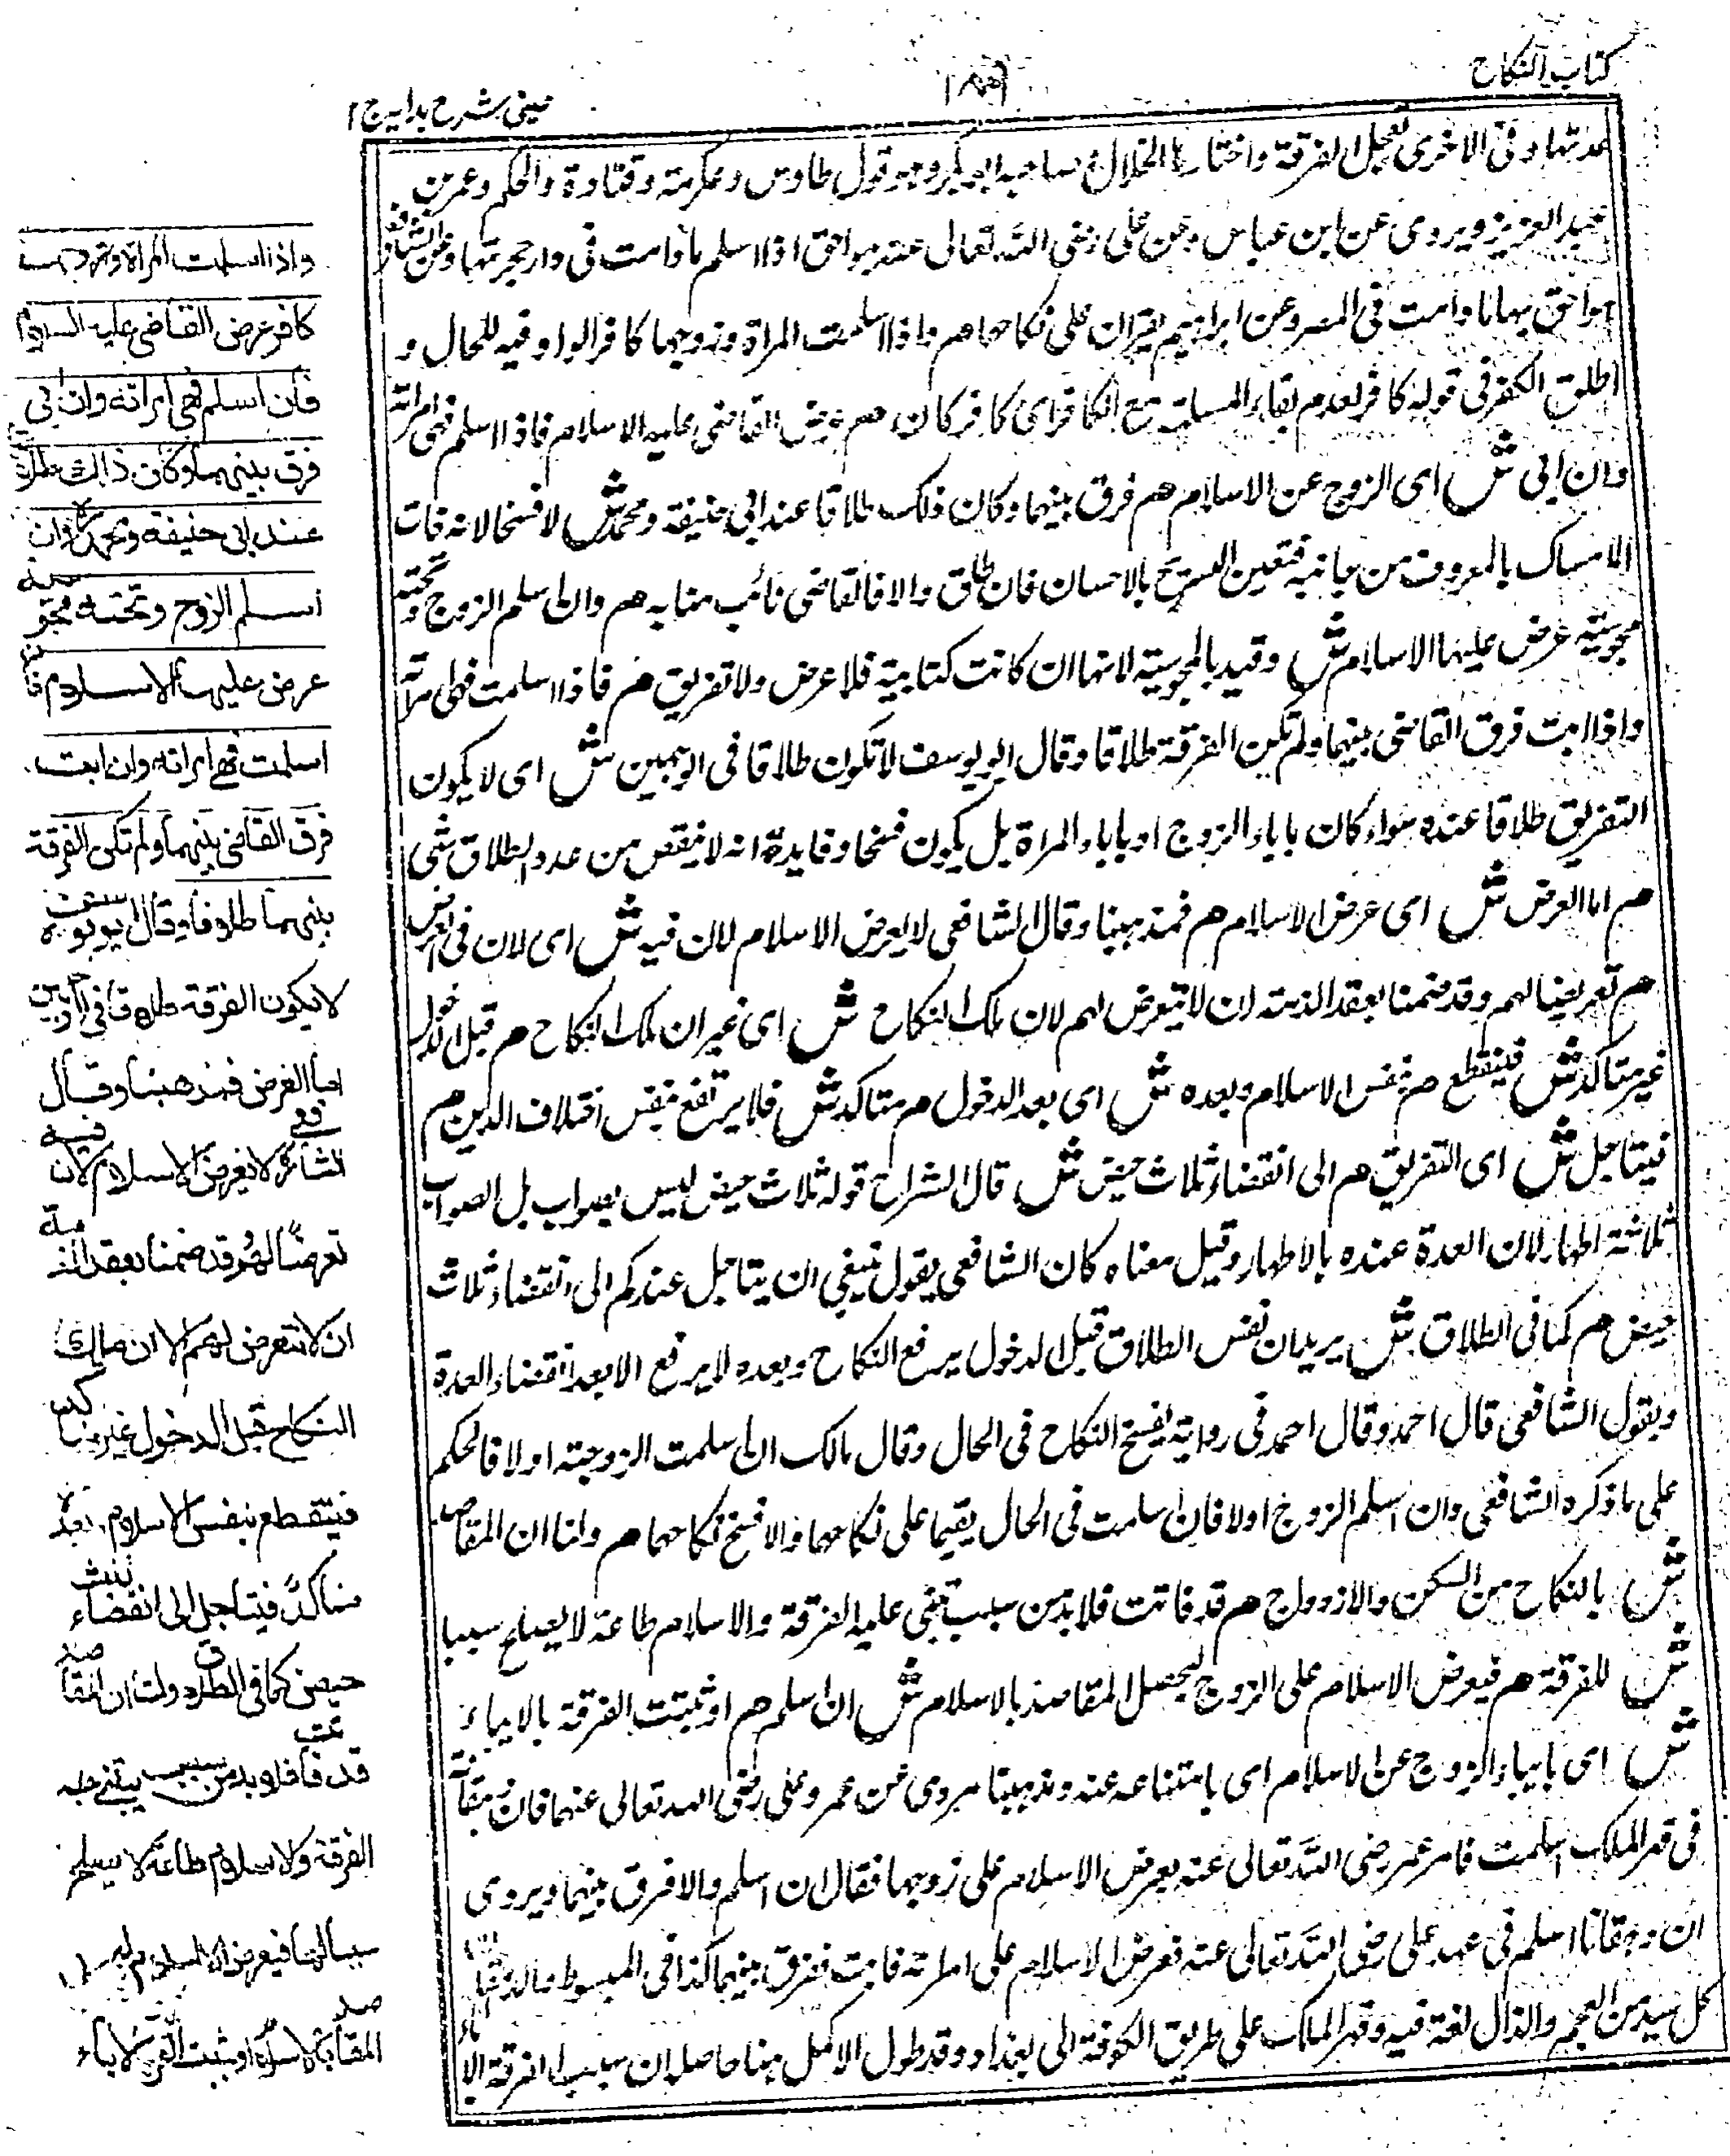 كتاب النكاح
١٨٩
عينى شرح هدايه ج ٢
عدتها وفى الاخرى تعجل الفرقة واختارها الخلال وصاحبه ابو بكر وهو قول طاوس وعكرمة وقتادة والحكم وعمر بن
عبد العزيز ويروى عن ابن عباس وعن على رضى الله تعالى عنه هو احق اذا اسلم ما دامت فى دار هجرتها وعن الشافعى
هو احق بها ما دامت فى المصر وعن ابراهيم يقران على نكاحهما هم واذا اسلمت المراة وزوجها كافر الواو فيه للحال و
اطلق الكفر فى قوله كافر لعدم بقاء المسلمة مع الكافر اى كافر كان هم عرض القاضى عليه الاسلام فاذا اسلم فهى امراته
وان ابى ش اى الزوج عن الاسلام هم فرق بينهما وكان ذلك طلاقا عند ابى حنيفة ومحمد ش لا فسخا لانه فات
الامساك بالمعروف من جانبه فتعين التسريح بالاحسان فان طلق والا فالقاضى نائب منابه هم وان اسلم الزوج وتحته
مجوسية عرض عليها الاسلام ش وقيد بالمجوسية لانها ان كانت كتابية فلا عرض ولا تفريق هم فاذا اسلمت فهى امراته
واذا ابت فرق القاضى بينهما ولم تكن الفرقة طلاقا وقال ابو يوسف لا تكون طلاقا فى الوجهين ش اى لا يكون
التفريق طلاقا عنده سواء كان باباء الزوج او باباء المراة بل يكون فسخا وفايدة انه لا ينقص من عدد الطلاق شى
هم اما العرض ش اى عرض الاسلام هم فمذهبنا وقال الشافعى لا يعرض الاسلام لان فيه ش اى لان فى العرض
هم تعريضا لهم وقد ضمنا بعقد الذمة ان لا نتعرض لهم لان ملك النكاح ش اى غير ان ملك النكاح هم قبل الدخول
غير متاكد ش فينقطع هم بنفس الاسلام وبعده ش اى بعد الدخول هم متاكد ش فلا يرتفع بنفس اختلاف الدين هم
فيتاجل ش اى التفريق هم الى انقضاء ثلاث حيض ش قال الشراح قوله ثلاث حيض ليس بصواب بل الصواب
ثلاثة اطهار لان العدة عنده بالاطهار وقيل معناه كان الشافعى يقول ينبغى ان يتاجل عندكم الى انقضاء ثلاث
حيض هم كما فى الطلاق ش يريد ان نفس الطلاق قبل الدخول يرفع النكاح وبعده لا يرفع الا بعد انقضاء العدة
وبقول الشافعى قال احمد وقال احمد فى رواية يفسخ النكاح فى الحال وقال مالك ان اسلمت الزوجة اولا فالحكم
على ما ذكره الشافعى وان اسلم الزوج اولا فان اسلمت فى الحال يقيما على نكاحهما والا فسخ نكاحهما هم ولنا ان المقاصد
ش بالنكاح من السكن والازدواج هم قد فاتت فلا بد من سبب تبنى عليه الفرقة والاسلام طاعة لا يصلح سببا
ش للفرقة هم فيعرض الاسلام على الزوج ليحصل المقاصد بالاسلام ش ان اسلم هم او ثبتت الفرقة بالاباء
ش اى باباء الزوج عن الاسلام اى بامتناعه عنه ومذهبنا مروى عن عمر وعلى رضى الله تعالى عنهما فان دهقانة
فى قهر الملك اسلمت فامر عمر رضى الله تعالى عنه بعرض الاسلام على زوجها فقال ان اسلم والا فرق بينهما ويروى
ان دهقانا اسلم فى عهد على رضى الله تعالى عنه فعرض الاسلام على امراته فابت ففرق بينهما كذا فى المبسوط والدهقان
كل سيد من العجم والذال لغة فيه وقهر الملك على طريق الكوفة الى بغداد وقد طول الاكمل هنا حاصله ان سبب الفرقة الاباء
واذا اسلمت المراة وزوجها
كافر عرض القاضى عليه السلام
فان اسلم فهى امراته وان ابى
فرق بينهما وكان ذالك طلاقا
عند ابى حنيفة ومحمد وان
اسلم الزوج وتحته مجوسية
عرض عليها الاسلام فان
اسلمت فهى امراته وان ابت
فرق القاضى بينهما ولم تكن الفرقة
بينهما طلاقا وقال ابو يوسف
لا يكون الفرقة طلاقا فى الوجهين
اما العرض فمذهبنا وقال
الشافعى لا يعرض الاسلام لان فيه
تعرضا لهم وقد ضمنا بعقد الذمة
ان لا نتعرض لهم الا ان ملك
النكاح قبل الدخول غير متاكد
فينقطع بنفس الاسلام وبعده
متاكد فيتاجل الى انقضاء ثلث
حيض كما فى الطلاق ولنا ان المقاصد
قد فاتت فلا بد من سبب يبتنى عليه
الفرقة والاسلام طاعة لا يصلح
سببا لها فيعرض الاسلام ليحصل
المقاصد بالاسلام او تثبت الفرقة بالاباء